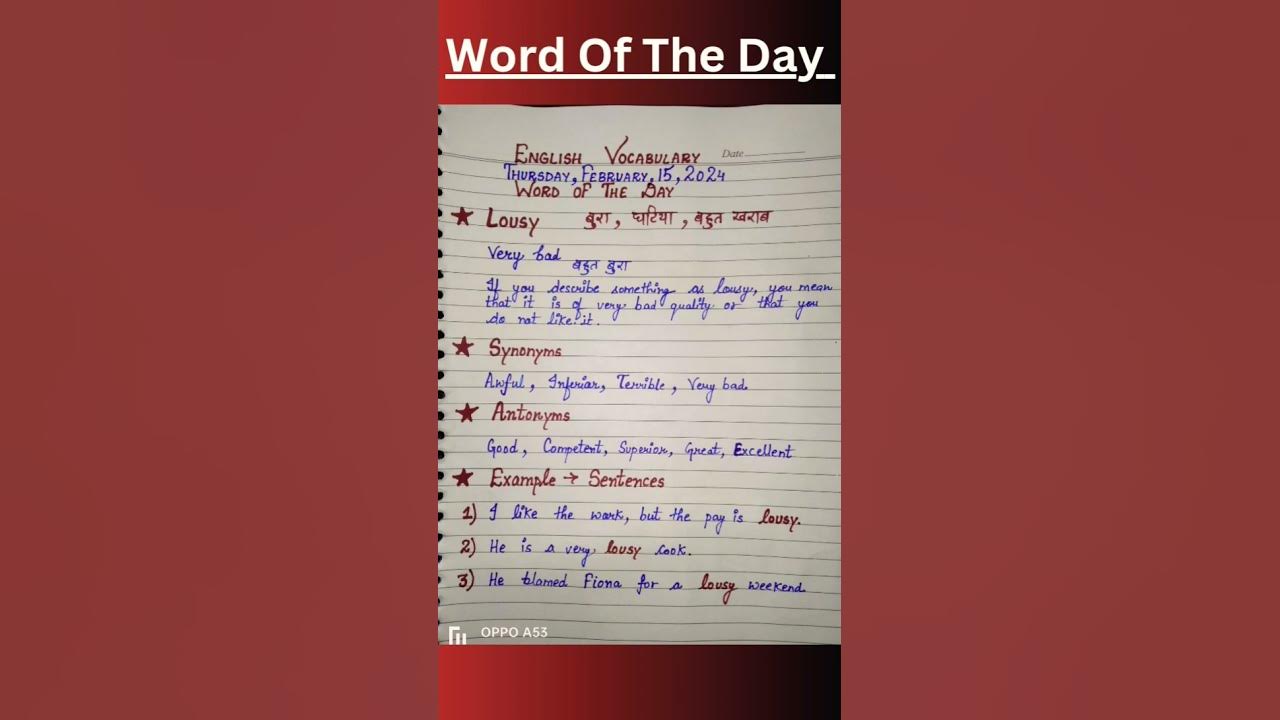 Word Of The Day
ENGLISH VOCABULARY
Date
THURSDAY, FEBRUARY, 15, 2024
WORD OF THE DAY
★ LOUSY बुरा, घटिया, बहुत खराब
Very bad बहुत बुरा
If you describe something as lousy, you mean
that it is of very bad quality or that you
do not like it.
★ Synonyms
Awful, Inferior, Terrible, Very bad
★ Antonyms
Good, Competent, Superior, Great, Excellent
★ Example → Sentences
1) I like the work, but the pay is lousy.
2) He is a very lousy cook.
3) He blamed Fiona for a lousy weekend
OPPO A53